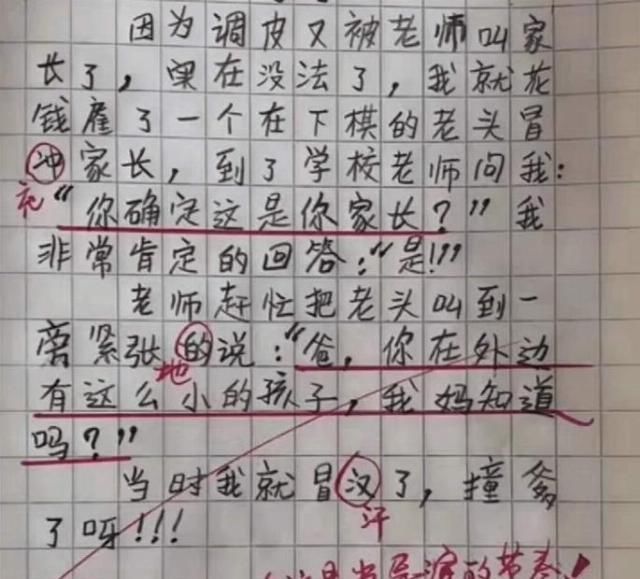 因为调皮又被老师叫家
长了，实在没法了，我就花
钱雇了一个在下棋的老头冒
冲家长，到了学校老师问我：
充
“你确定这是你家长？”我
非常肯定的回答：“是!!”
老师赶忙把老头叫到一
旁紧张的说：“爸，你在外边
地
有这么小的孩子，我妈知道
吗？”
当时我就冒汉了，撞爹
汗
了呀!!!
导演的节奏！